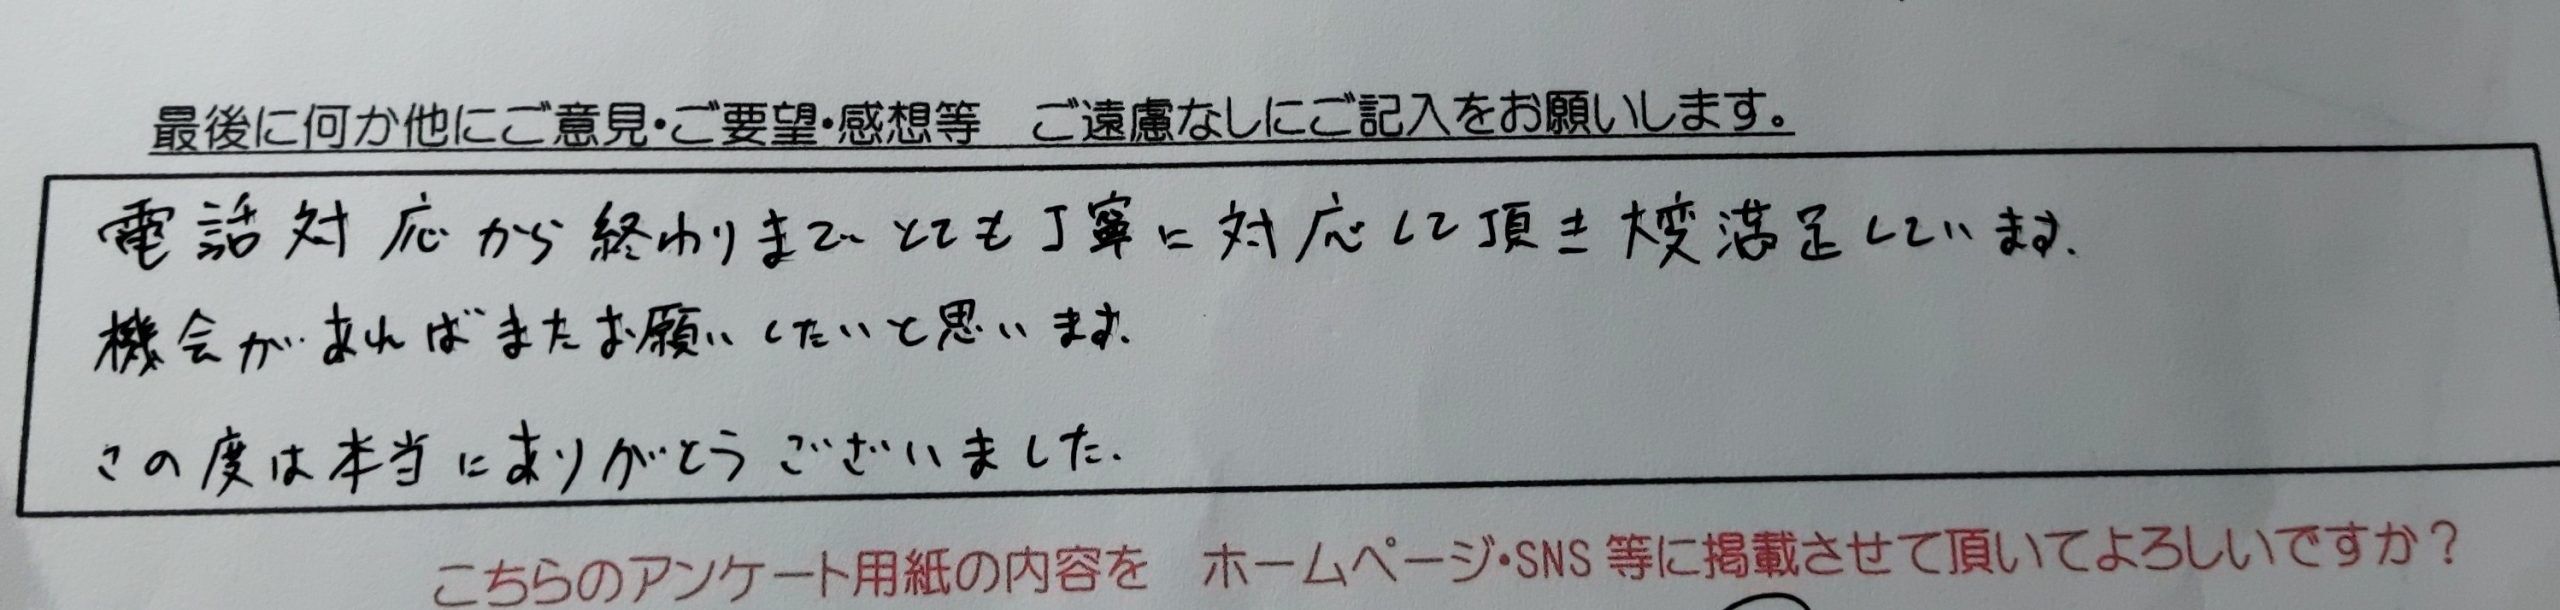 最後に何か他にご意見・ご要望・感想等　ご遠慮なしにご記入をお願いします。
電話対応から終わりまでとても丁寧に対応して頂き大変満足しています.
機会があればまたお願いしたいと思います.
この度は本当にありがとうございました.
こちらのアンケート用紙の内容を　ホームページ・SNS等に掲載させて頂いてよろしいですか？